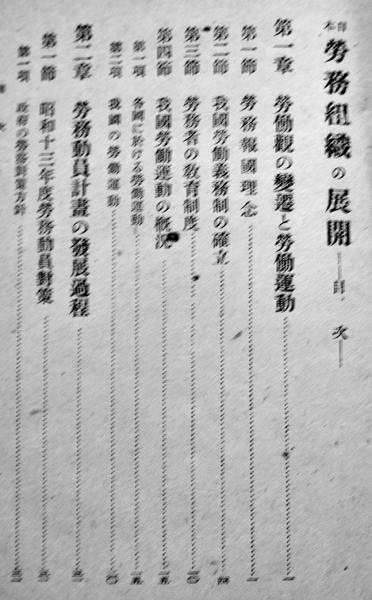 勞務組織の展開——目次——
第一章 勞働觀の變遷と勞働運動 一
第一節 勞務報國理念 一
第二節 我國勞働義務制の確立 四
第三節 勞務者の敎育制度 一〇
第四節 我國勞働運動の槪況 一五
第一項 各國に於ける勞働運動 一五
第二項 我國の勞働運動 二〇
第二章 勞務動員計畫の發展過程
第一節 昭和十三年度勞務動員對策
第一項 政府の勞務對策方針